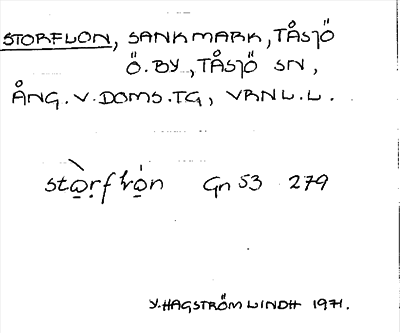 STORFLON, SANKMARK, TÅSJÖ
Ö. BY, TÅSJÖ SN,
ÅNG. V. DOMS. TG, VRNL. L.
Gn 53 279
Y. HAGSTRÖM LINDH 1971.